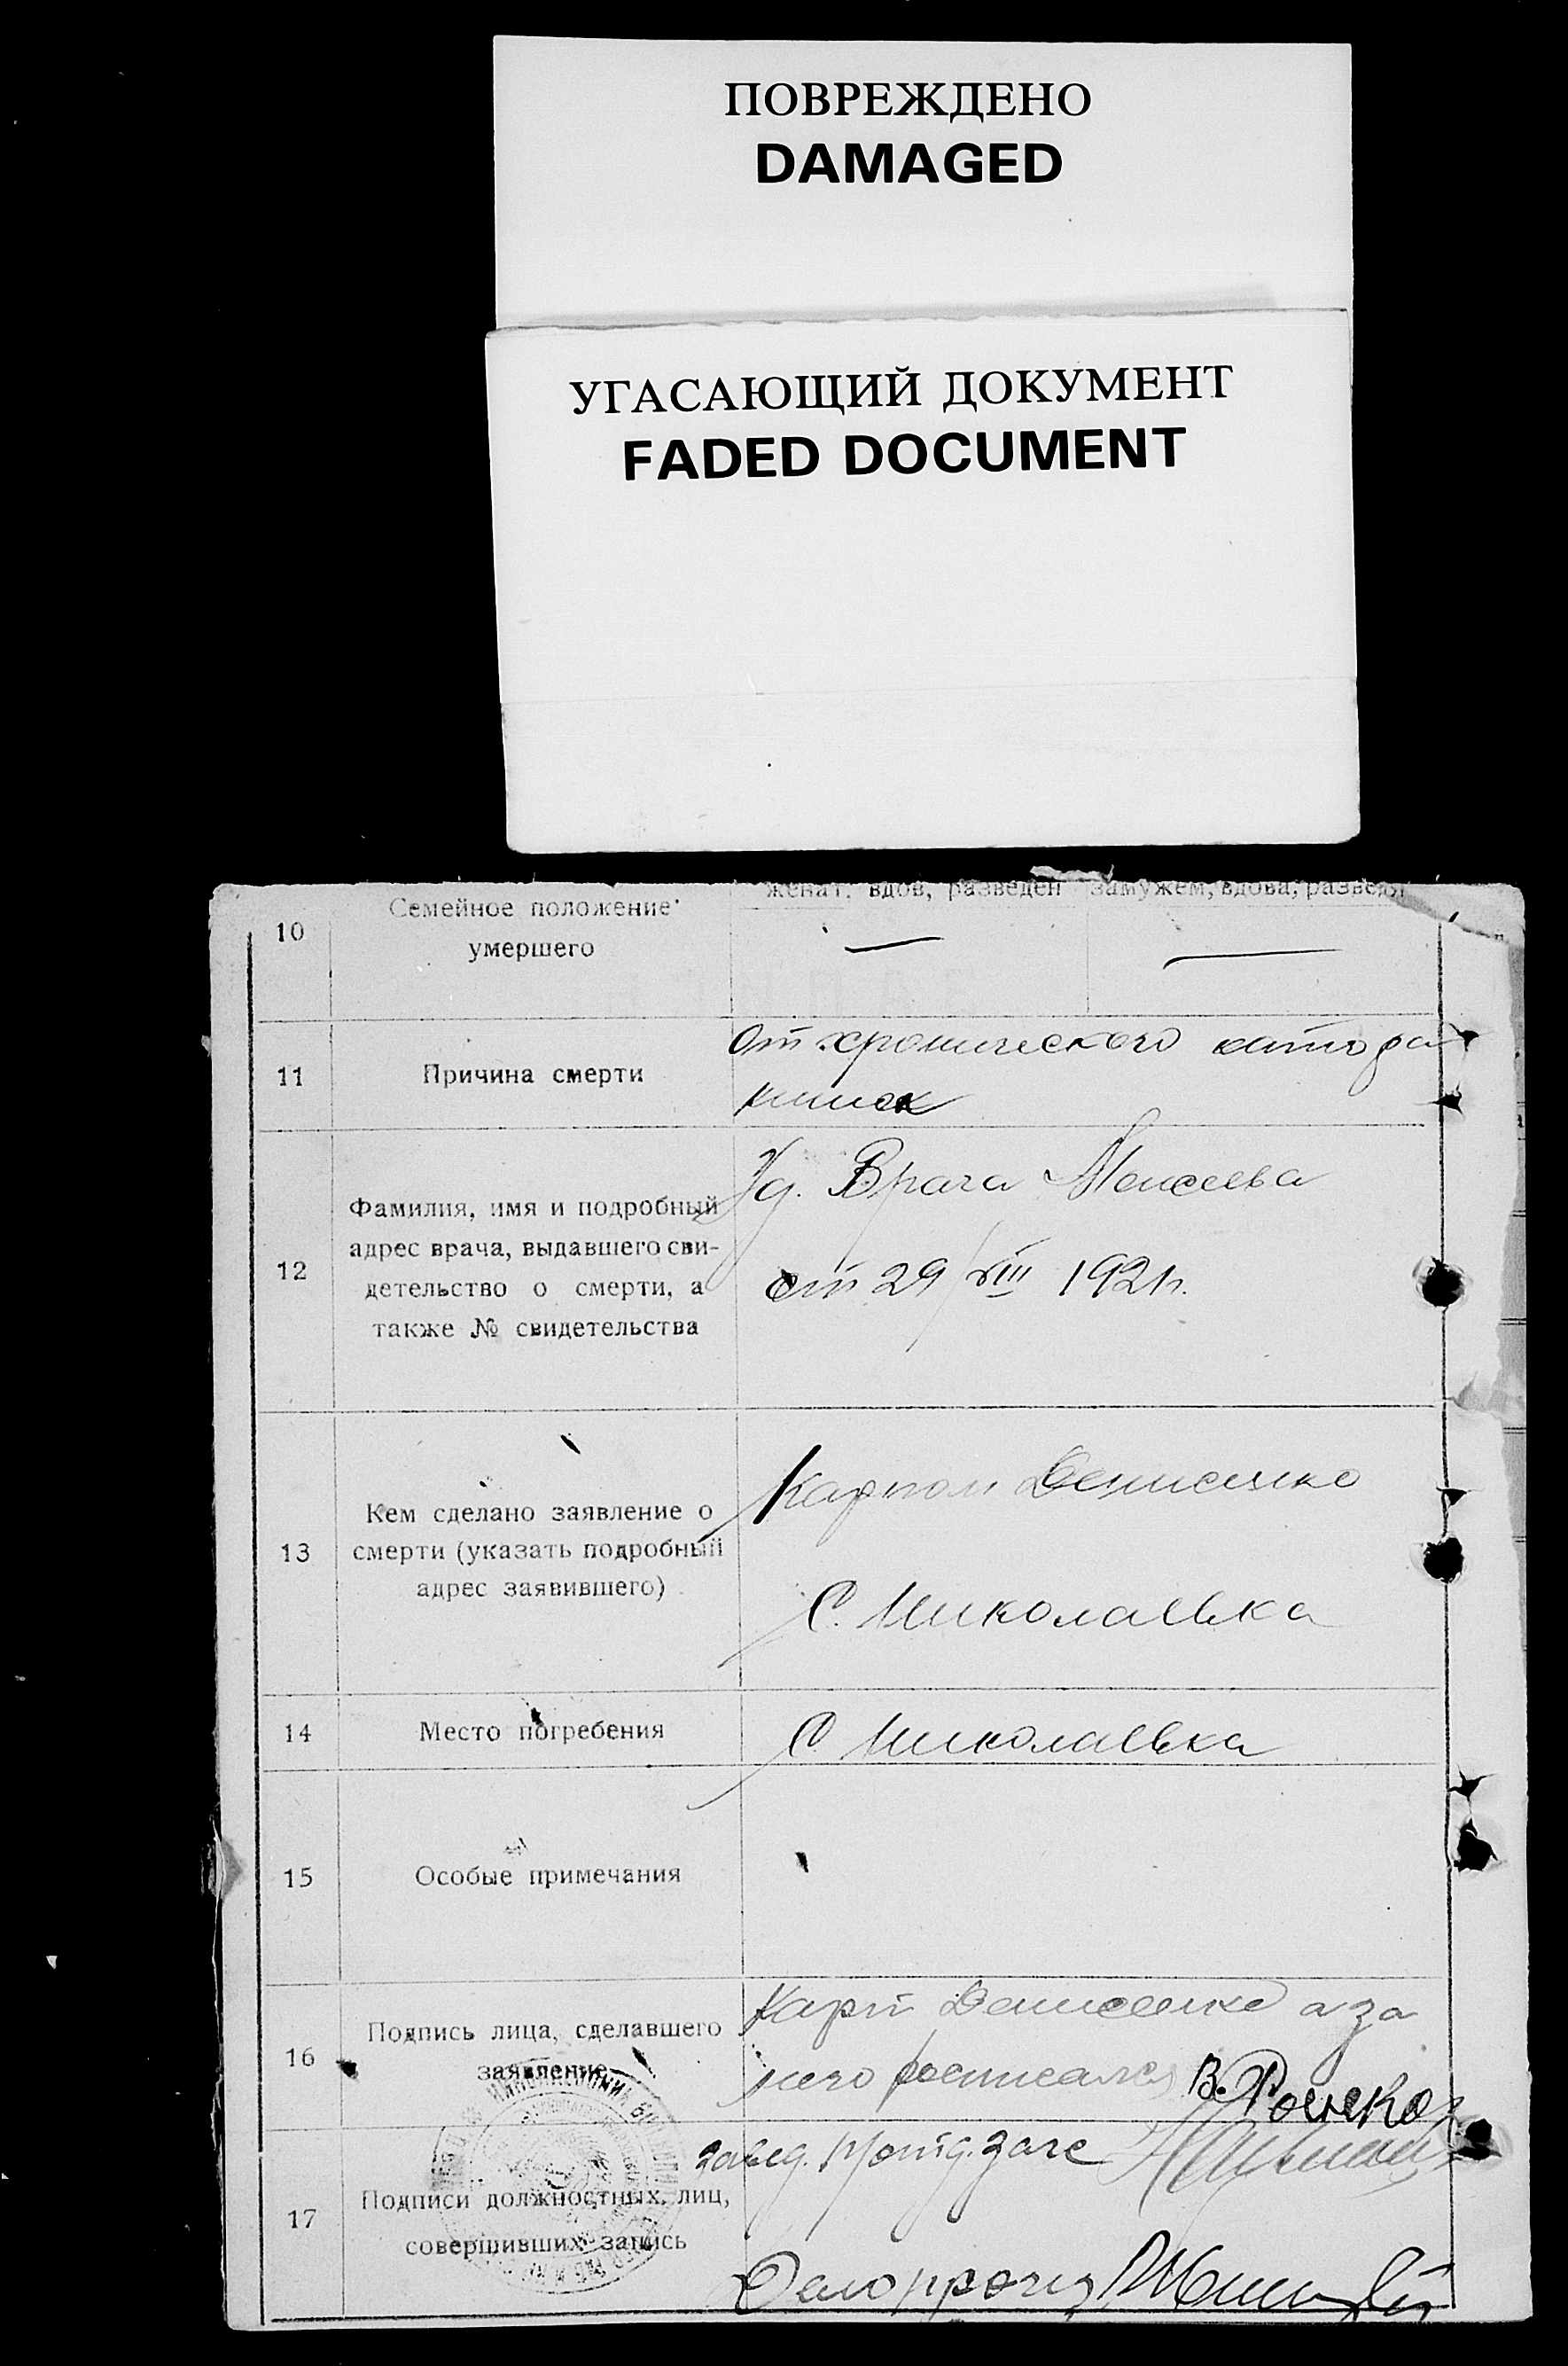 ПОВРЕЖДЕНО
DAMAGED
УГАСАЮЩИЙ ДОКУМЕНТ
FADED DOCUMENT
женат, вдов, разведен замужем, вдова,
10
Семейное положение
умершего
— —
11
Причина смерти
От хронического
кишок
12
Фамилия, имя и подробный
адрес врача, выдавшего сви-
детельство о смерти, а
также № свидетельства
Уд. Врача Моисеева
от 29/VIII 192
13
Кем сделано заявление о
смерти (указать подробный
адрес заявившего)
Карпом Денисенко
С. Николаевка
14
Место погребения
С. Николаевка
15
Особые примечания
16
Подпись лица, сделавшего
заявление
Карп Денисенко а за
него росписался В.
17
Подписи должностных лиц,
совершивших запись
Завед.
Делопроизв